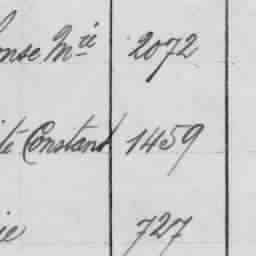 onse Mie 2072
ité Constant 1459
ie 727